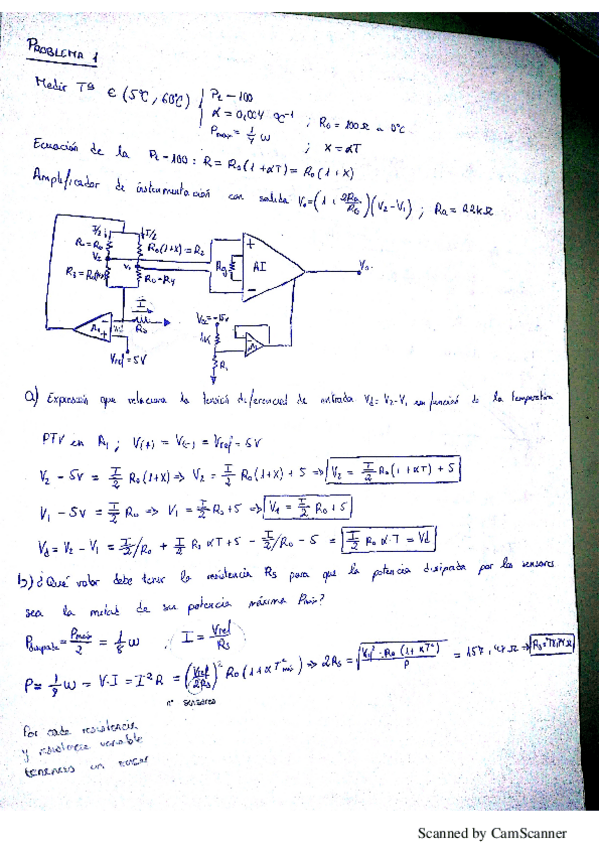 PROBLEMA 1
Medir Tª ∈ (5ºC, 60ºC)
Pt-100
α = 0,004 ºC⁻¹
Pmax = 1/4 W
; R₀ = 100Ω a 0ºC
; x = αT
Ecuación de la Pt-100 : R = R₀(1+αT) = R₀(1+x)
Amplificador de instrumentación con salida V₀ = (1 + 2Ra/RG)(V₂-V₁) ; Ra = 22kΩ
I/2
I/2
R₁=R₀
R₀(1+x)=R₂
V₂
V₁
R₀=R₄
Rg
AI
V₀
I
A₁
Vref=5V
1K
R₁
a) Expresión que relaciona la tensión diferencial de entrada Vd = V₂-V₁ en función de la temperatura
V(+) = V(-) = Vref = 5V
V₂ - 5V = I/2 R₀(1+x) => V₂ = I/2 R₀(1+x) + 5 => V₂ = I/2 R₀(1+αT) + 5
V₁ - 5V = I/2 R₀ => V₁ = I/2 R₀ + 5 => V₁ = I/2 R₀ + 5
Vd = V₂ - V₁ = I/2 R₀ + I/2 R₀ αT + 5 - I/2 R₀ - 5 = I/2 R₀ α·T = Vd
b) ¿Qué valor debe tener la resistencia Rs para que la potencia disipada por los sensores
sea la mitad de su potencia máxima Pmax?
= Pmax/2 = 1/8 W
I = Vref/Rs
= V·I = I²R = (Vref/2Rs)² R₀(1+αT
=> 2Rs =
= 157,47Ω =>
nº sensores
Por cada resistencia
y resistencia variable
tenemos un
Scanned by CamScanner